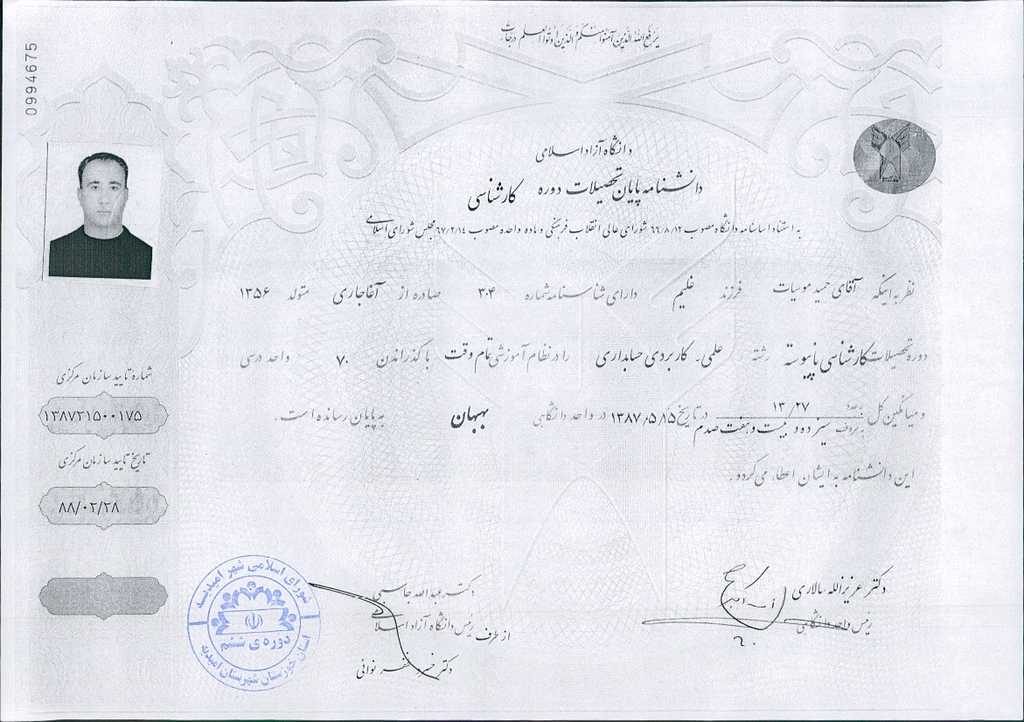 0994675
یرفع الله الذین آمنوا منکم والذین اوتوا العلم درجات
دانشگاه آزاد اسلامی
دانشنامه پایان تحصیلات دوره کارشناسی
به استناد اساسنامه دانشگاه مصوب ۶۶/۸/۱۲ شورای عالی انقلاب فرهنگی و ماده واحده مصوب ۶۷/۲/۱۴ مجلس شورای اسلامی
نظر به اینکه آقای حمید موسیات فرزند غلیم دارای شناسنامه شماره ۳۰۴ صادره از آغاجاری متولد ۱۳۵۶
دوره تحصیلات کارشناسی ناپیوسته رشته علمی - کاربردی حسابداری را در نظام آموزشی تمام وقت با گذراندن ۷۰ واحد درسی
و میانگین کل به عدد ۱۳/۲۷ به حروف سیزده و بیست و هفت صدم در تاریخ ۱۳۸۷/۵/۱۵ در واحد دانشگاهی بهبهان به پایان رسانده است.
این دانشنامه به ایشان اعطاء می گردد.
شماره تایید سازمان مرکزی
۱۳۸۷۳۱۵۰۰۱۷۵
تاریخ تایید سازمان مرکزی
۸۸/۰۲/۲۸
دکتر عزیزالله سالاری
رئیس واحد دانشگاهی
دکتر عبدالله جاسبی
رئیس دانشگاه آزاد اسلامی
از طرف
دکتر
نوائی
شورای اسلامی شهر امیدیه
دوره ی ششم
استان خوزستان شهرستان امیدیه